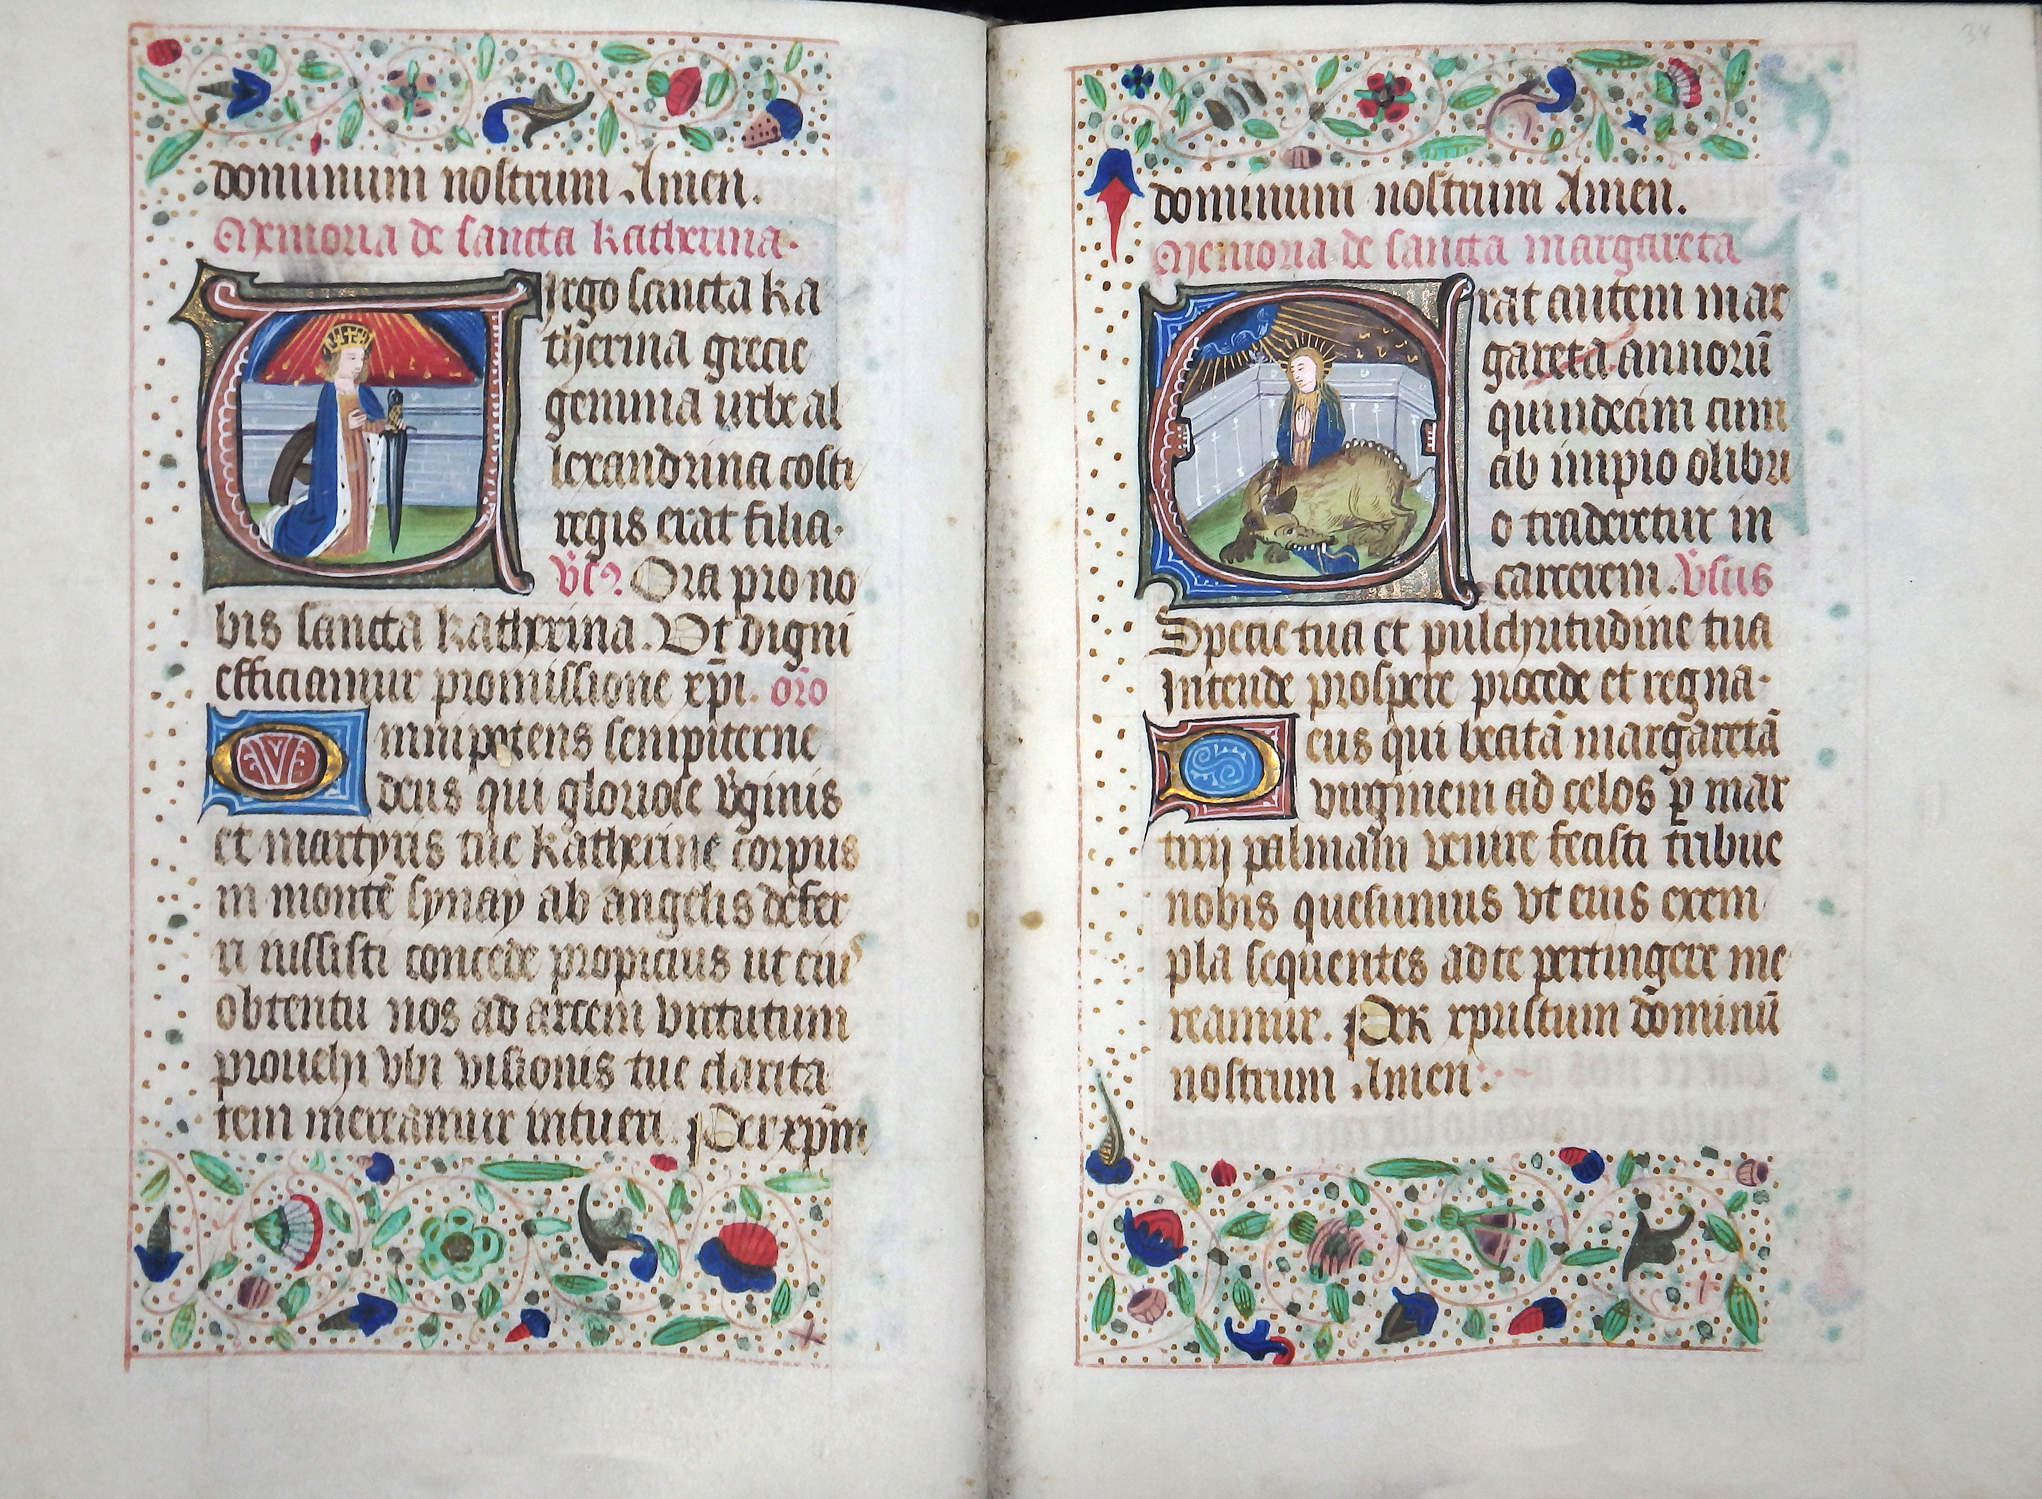 dominum nostrum Amen.
Memoria de sancta katherina.
Virgo sancta ka
therina grecie
gemma urbe al
lexandrina costi
regis erat filia.
vs Ora pro no
bis sancta katherina. Vt digni
efficiamur promissione xpi. oro
Omnipotens sempiterne
deus qui gloriose vginis
et martyris tue katherine corpus
in monte synay ab angelis defer
ri iussisti concede propicius ut eius
obtentu nos ad arcem virtutum
prouehi vbi visionis tue clarita
tem mereamur intueri. Per xpm
34
dominum nostrum Amen.
Memoria de sancta margareta
Erat autem mar
gareta annorū
quindecim cum
ab impio olibri
o traderetur in
carcerem. Vsus
Specie tua et pulchritudine tua
Intende prospere procede et regna.
Deus qui beatā margaretā
virginem ad celos p mar
tirij palmam venire fecisti tribue
nobis quesumus vt eius exem
pla sequentes ad te pertingere me
reamur. PER xpristum dominū
nostrum Amen.